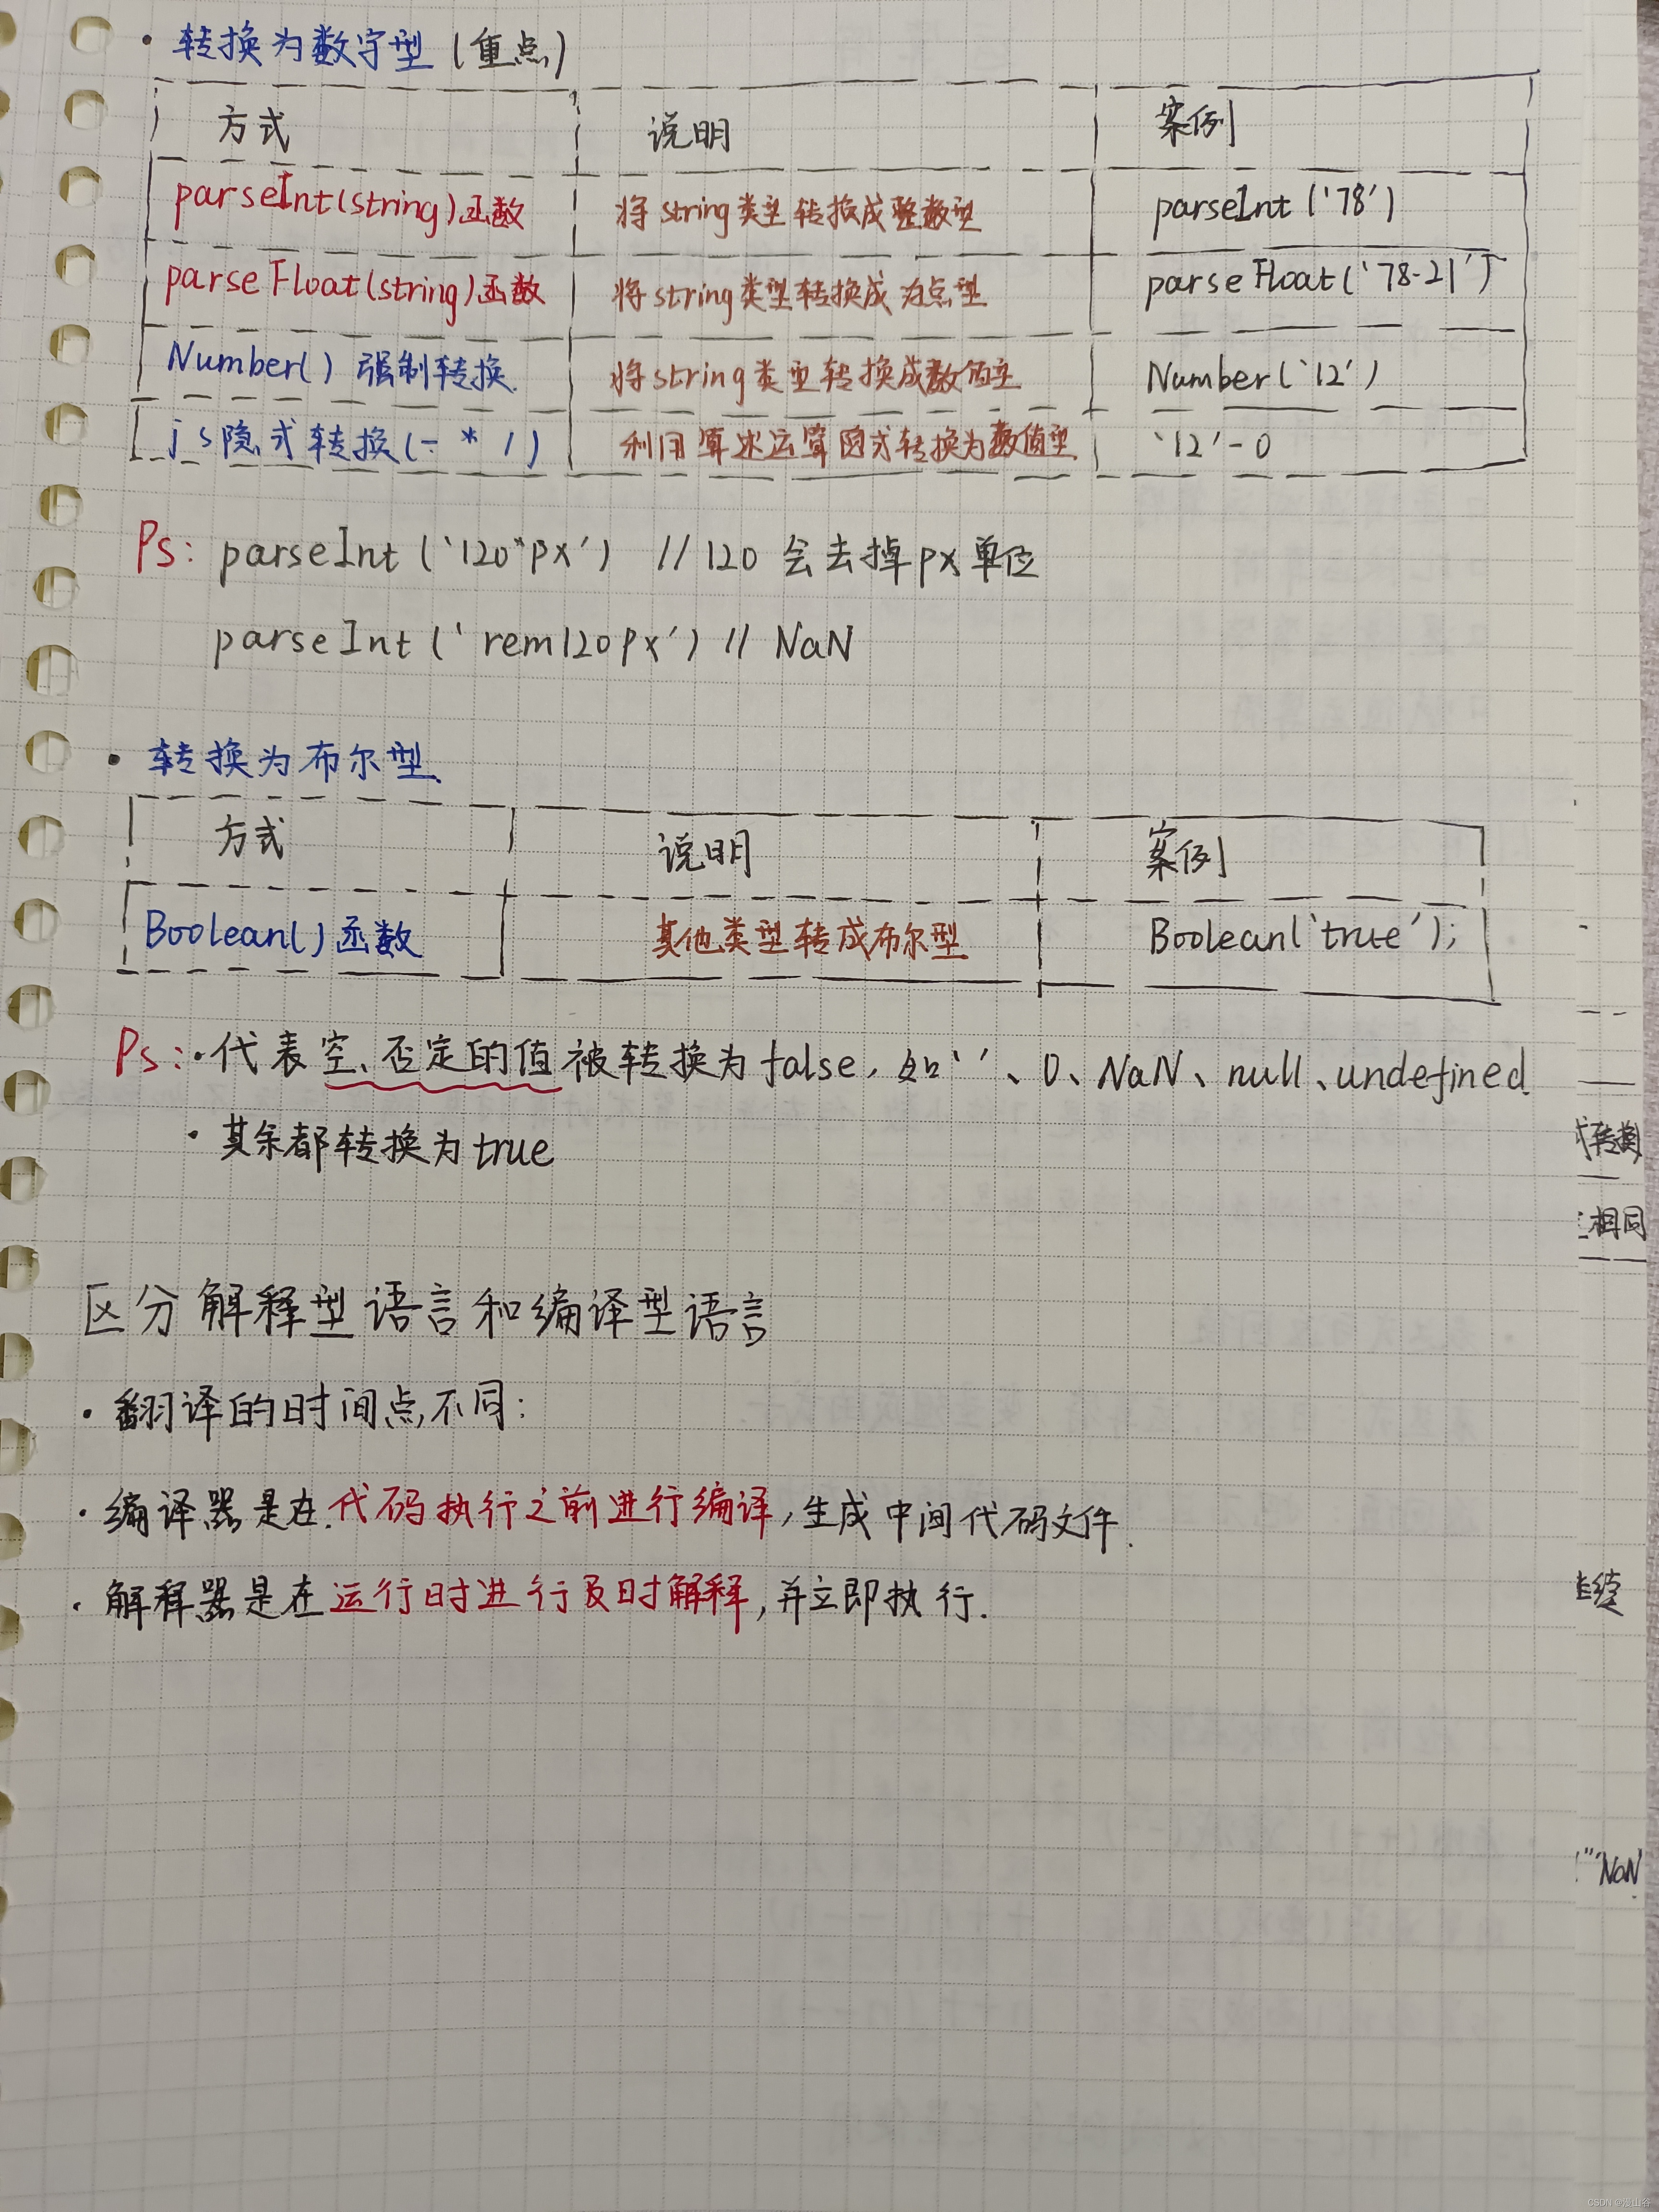 · 转换为数字型 (重点)
方式 说明 案例
parseInt(string)函数 将string类型转换成整数型 parseInt('78')
parseFloat(string)函数 将string类型转换成浮点型 parseFloat('78.21')
Number() 强制转换 将string类型转换成数值型 Number('12')
js隐式转换(- * /) 利用算术运算隐式转换为数值型 '12'-0
Ps: parseInt('120px') //120 会去掉px单位
parseInt('rem120px') // NaN
· 转换为布尔型
方式 说明 案例
Boolean()函数 其他类型转成布尔型 Boolean('true');
Ps: · 代表空、否定的值被转换为false, 如''、0、NaN、null、undefined
· 其余都转换为true
区分解释型语言和编译型语言
· 翻译的时间点不同:
· 编译器是在代码执行之前进行编译,生成中间代码文件.
· 解释器是在运行时进行及时解释,并立即执行.
式转换
相同
NaN
CSDN @漫山谷